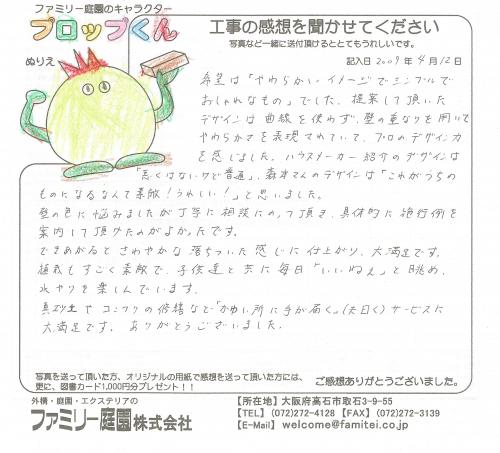 ファミリー庭園のキャラクター
プロップくん
ぬりえ
工事の感想を聞かせてください
写真など一緒に送付頂けるととてもうれしいです。
記入日 2009年4月12日
希望は「やわらかいイメージでシンプルで
おしゃれなもの」でした。提案して頂いた
デザインは曲線を使わず、壁の重なりを用いて
やわらかさを表現されていて、プロのデザイン力
を感じました。ハウスメーカー紹介のデザインは
「悪くはないけど普通」、森本さんのデザインは「これがうちの
ものになるなんて素敵！うれしい！」と思いました。
壁の色に悩みましたが丁寧に相談にのって頂き、具体的に施行例を
案内して頂けたのがよかったです。
できあがると さわやかな落ちついた感じに仕上がり、大満足です。
植栽もすごく素敵で、子供達と共に毎日「いいねぇ」と眺め、
水やりを楽しんでいます。
真砂土やコンクリの修繕など「かゆい所に手が届く」(夫曰く)サービスに
大満足です。ありがとうございました。
写真を送って頂いた方、オリジナルの用紙で感想を送って頂いた方には、
更に、図書カード1,000円分プレゼント！！
ご感想ありがとうございました。
外構・庭園・エクステリアの
ファミリー庭園株式会社
【所在地】大阪府高石市取石3-9-55
【TEL】(072)272-4128 【FAX】(072)272-3139
【E-Mail】 welcome@famitei.co.jp